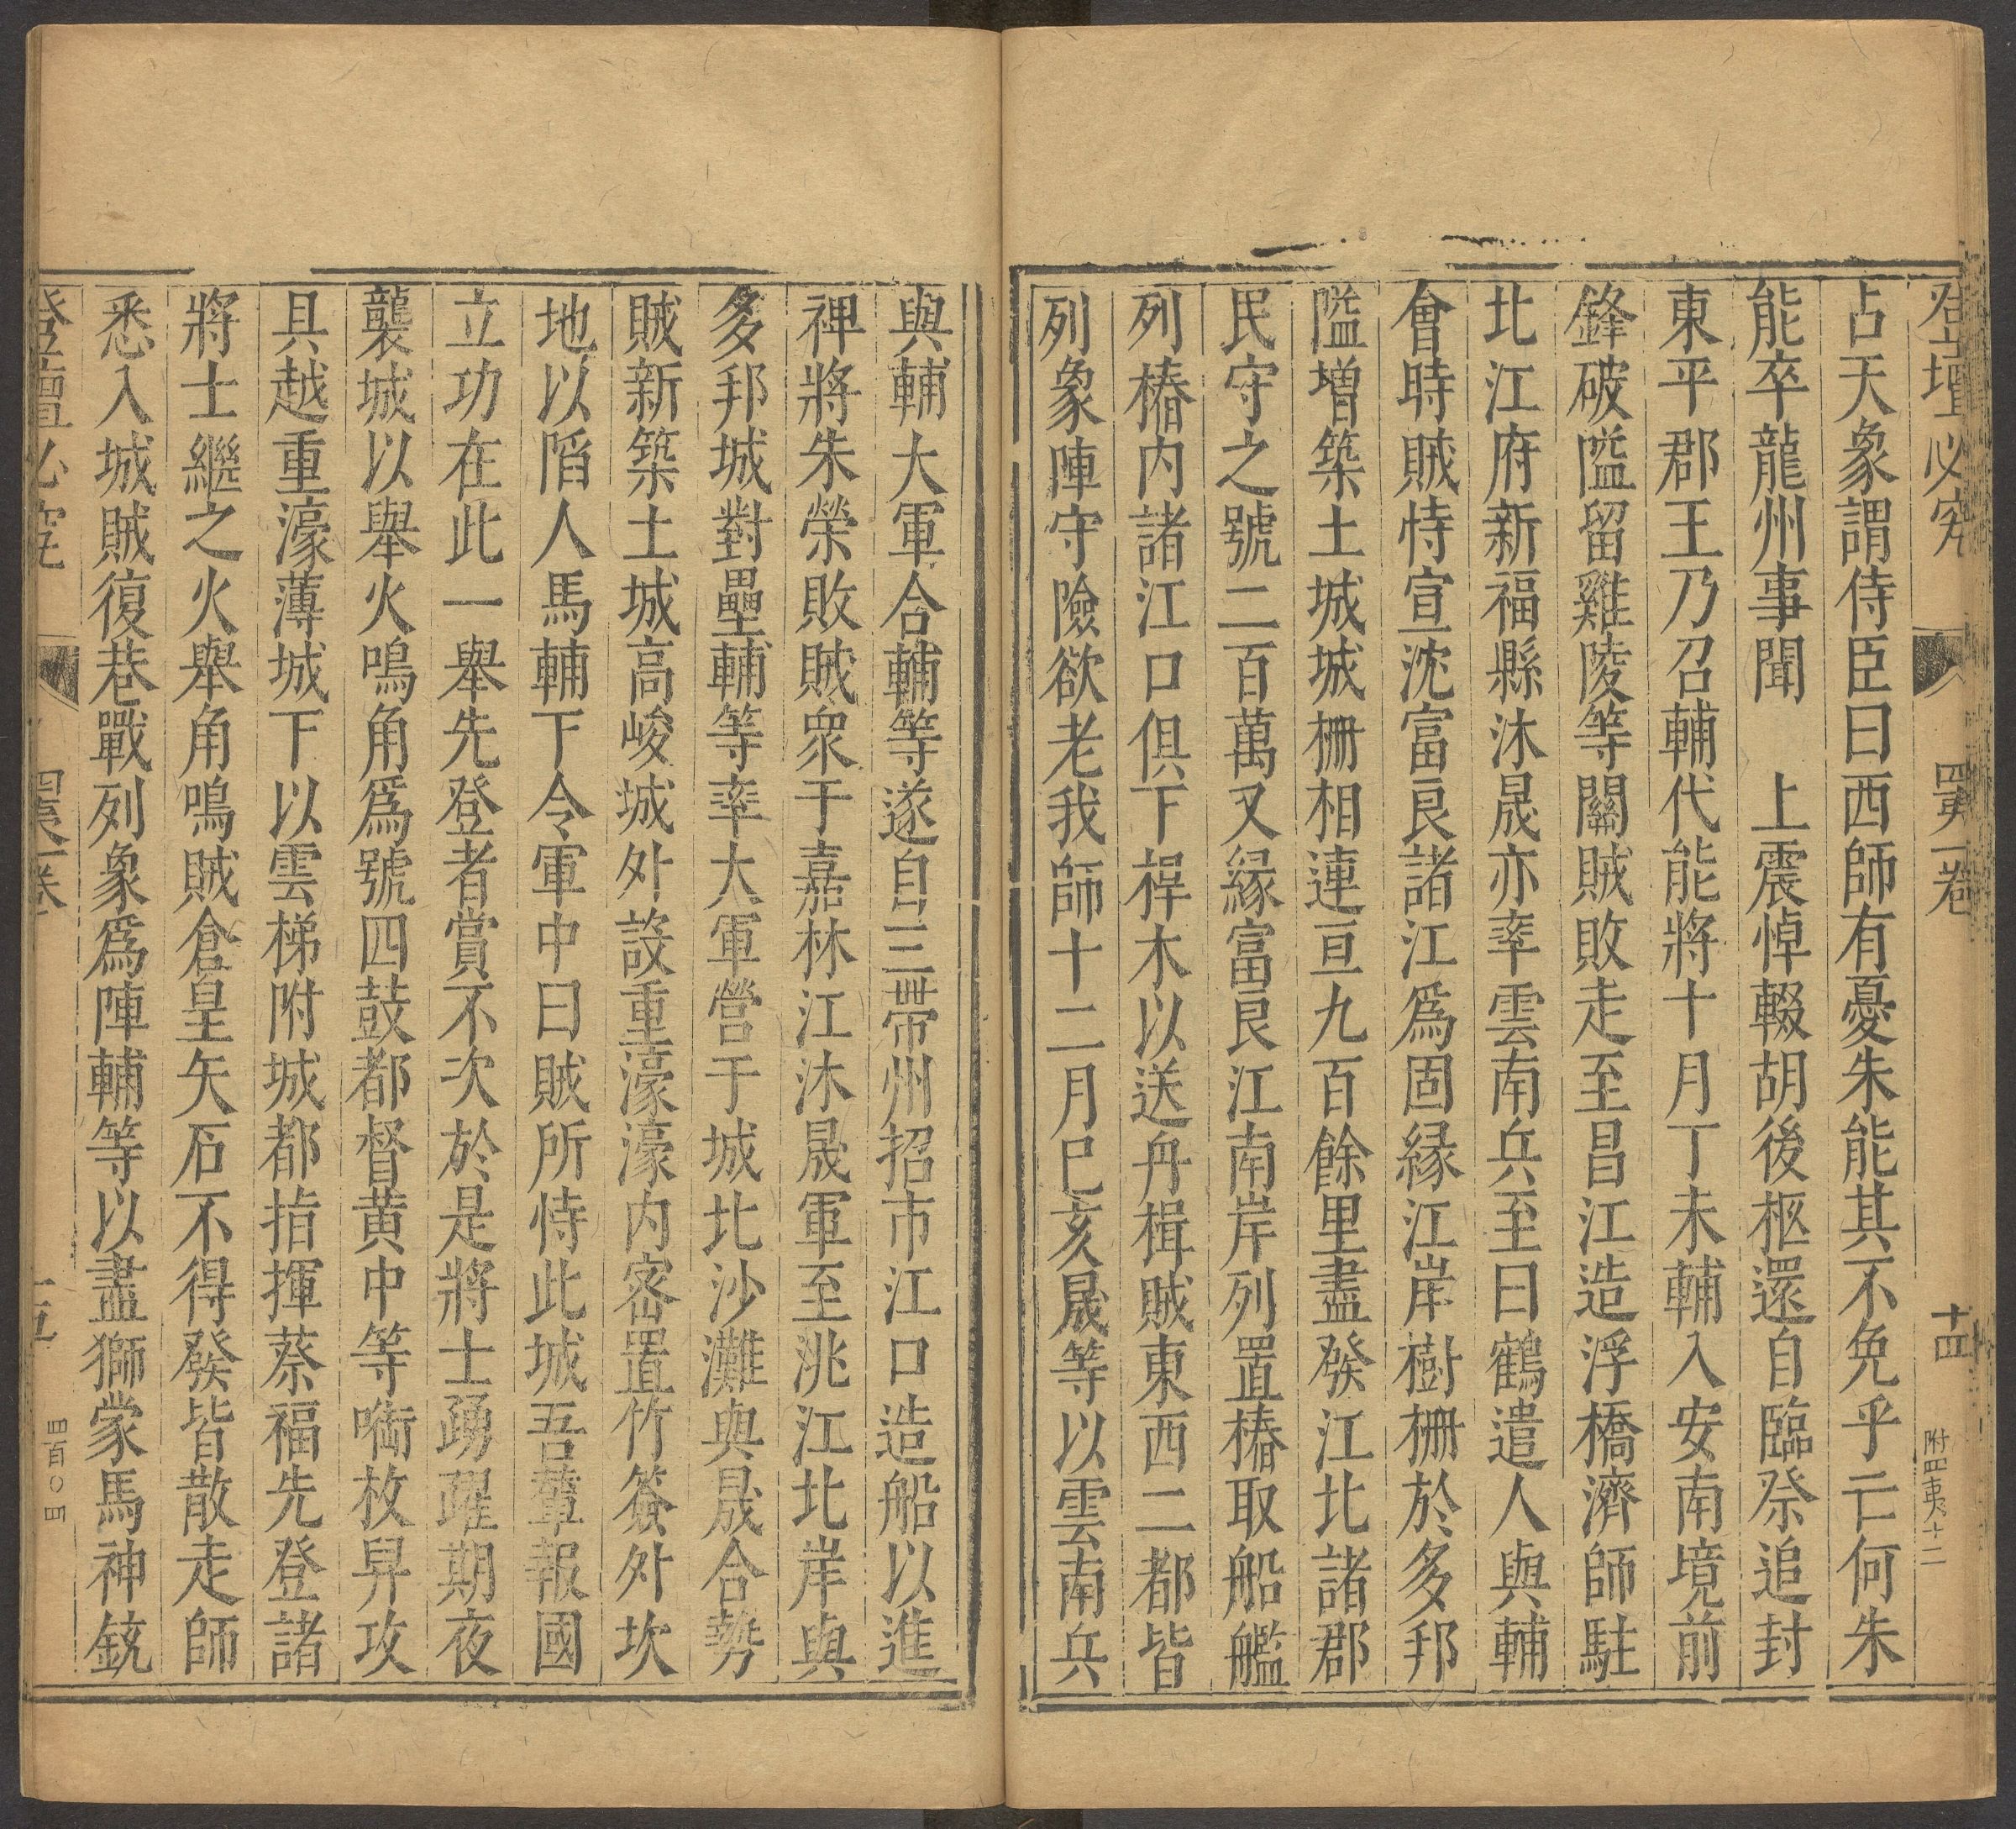 登壇必究 四夷一卷 十四
附四夷十二
占天象謂侍臣曰西師有憂朱能其不免乎亡何朱
能卒龍州事聞 上震悼輟胡後柩還自臨祭追封
東平郡王乃召輔代能將十月丁未輔入安南境前
鋒破隘留雞陵等關賊敗走至昌江造浮橋濟師駐
北江府新福縣沐晟亦率雲南兵至曰鶴遣人與輔
會時賊恃宣沈富良諸江爲固緣江岸樹柵於多邦
隘增築土城城柵相連亘九百餘里盡發江北諸郡
民守之號二百萬又緣富良江南岸列置樁取船艦
列樁內諸江口俱下桿木以送舟楫賊東西二都皆
列象陣守險欲老我師十二月巳亥晟等以雲南兵
與輔大軍合輔等遂自三帶州招市江口造船以進
裨將朱榮敗賊眾于嘉林江沐晟軍至洮江北岸與
多邦城對壘輔等率大軍營于城北沙灘與晟合勢
賊新築土城高峻城外設重濠濠內密置竹簽外坎
地以陷人馬輔下令軍中曰賊所恃此城吾輩報國
立功在此一舉先登者賞不次於是將士踴躍期夜
襲城以舉火鳴角爲號四鼓都督黃中等啣枚舁攻
具越重濠薄城下以雲梯附城都指揮蔡福先登諸
將士繼之火舉角鳴賊倉皇矢石不得發皆散走師
悉入城賊復巷戰列象爲陣輔等以畫獅蒙馬神銃
登壇必究 四夷一卷 十五
四百〇四